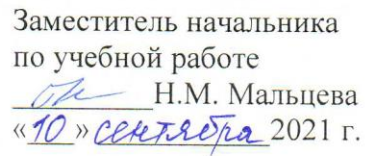 Заместитель начальника
по учебной работе
Н.М. Мальцева
«10» сентября 2021 г.